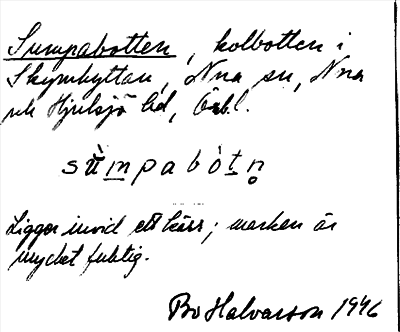 Sumpabotten, kolbotten i
Skymhyttan, Nna sn, Nna
och Hjulsjö bd, Örebl.
sùmpabòtn̥
Ligger invid ett kärr; marken är
mycket fuktig.
Bo Halvarson 1946